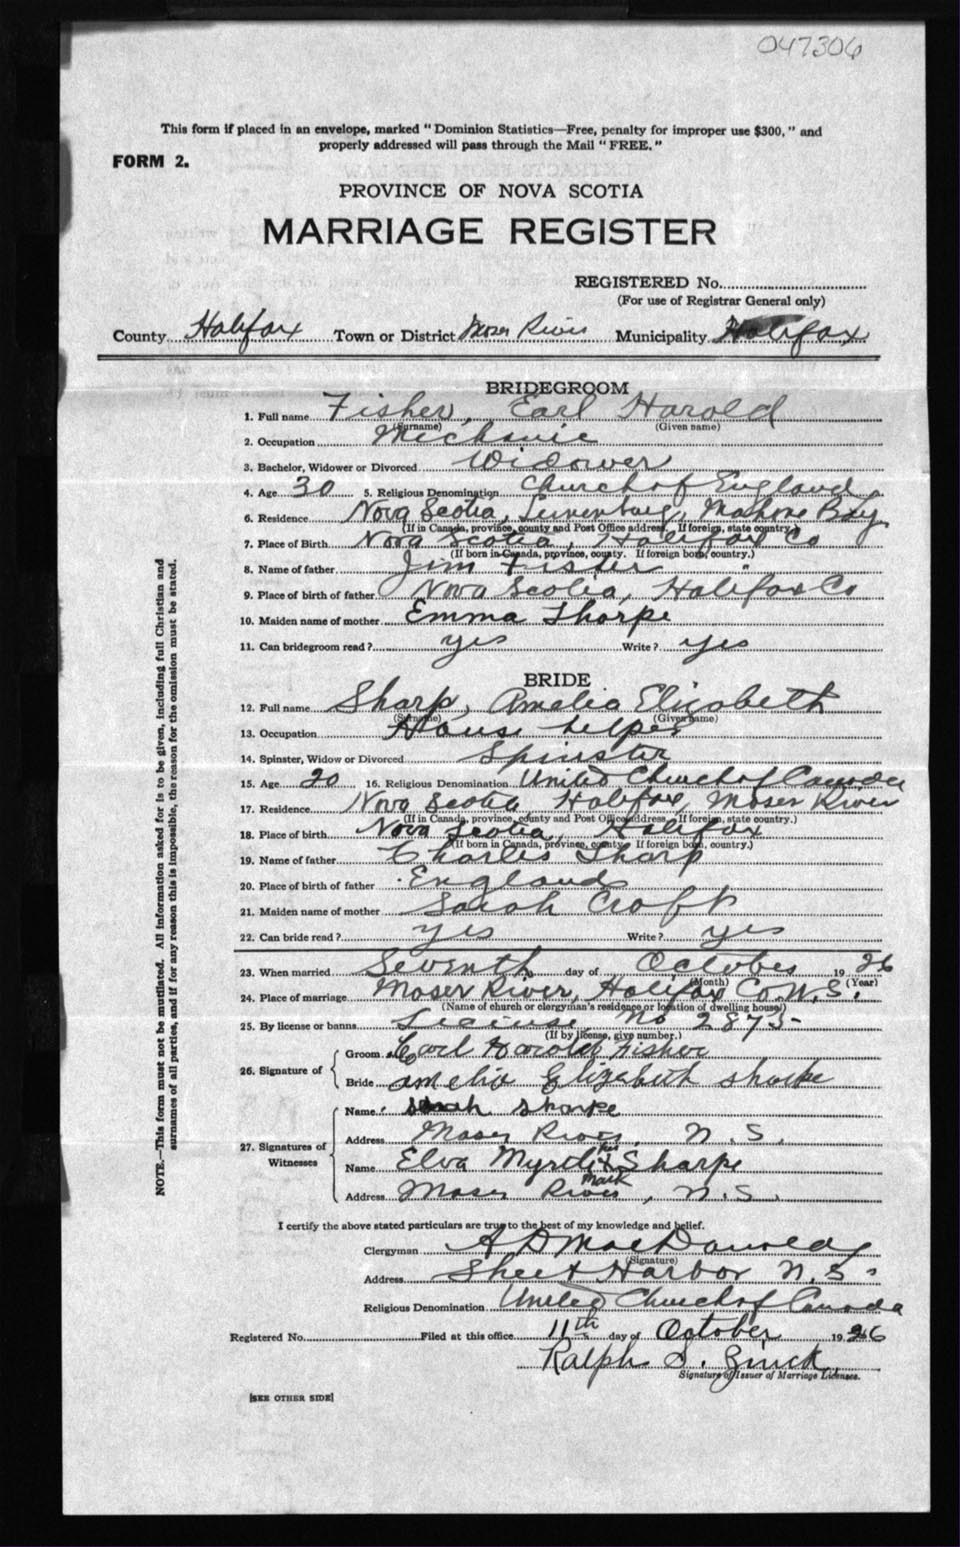 047306
This form if placed in an envelope, marked "Dominion Statistics—Free, penalty for improper use $300," and
properly addressed will pass through the Mail "FREE."
FORM 2.
PROVINCE OF NOVA SCOTIA
MARRIAGE REGISTER
REGISTERED No.
(For use of Registrar General only)
County Halifax Town or District Moser River Municipality Halifax
BRIDEGROOM
1. Full name Fisher, Earl Harold
(Surname) (Given name)
2. Occupation Mechanic
3. Bachelor, Widower or Divorced Widower
4. Age 30 5. Religious Denomination Church of England
6. Residence Nova Scotia, Lunenburg, Mahone Bay
(If in Canada, province, county and Post Office address. If foreign, state country.)
7. Place of Birth Nova Scotia, Halifax Co
(If born in Canada, province, county. If foreign born, country.)
8. Name of father Jim Fisher
9. Place of birth of father Nova Scotia, Halifax Co
10. Maiden name of mother Emma Tharpe
11. Can bridegroom read? yes Write? yes
BRIDE
12. Full name Sharp, Amelia Elizabeth
(Surname) (Given name)
13. Occupation House helper
14. Spinster, Widow or Divorced Spinster
15. Age 20 16. Religious Denomination United Church of Canada
17. Residence Nova Scotia Halifax, Moser River
(If in Canada, province, county and Post Office address. If foreign, state country.)
18. Place of birth Nova Scotia, Halifax
(If born in Canada, province, county. If foreign born, country.)
19. Name of father Charles Sharp
20. Place of birth of father England
21. Maiden name of mother Sarah Croft
22. Can bride read? yes Write? yes
23. When married Seventh day of October 19 26
(Month) (Year)
24. Place of marriage Moser River, Halifax Co. N.S.
(Name of church or clergyman's residence or location of dwelling house)
25. By license or banns License No 2873
(If by license, give number.)
26. Signature of
Groom Earl Harold Fisher
Bride Amelia Elizabeth Sharpe
27. Signatures of Witnesses
Name Sarah Sharpe
Address Moser River, N.S.
Name Elva Myrtle her X mark Sharpe
Address Moser River, N.S.
I certify the above stated particulars are true to the best of my knowledge and belief.
Clergyman A D MacDonald
(Signature)
Address Sheet Harbor N.S.
Religious Denomination United Church of Canada
Registered No. Filed at this office 11th day of October 19 26
Ralph S.
Signature of Issuer of Marriage Licenses.
[SEE OTHER SIDE]
NOTE.—This form must not be mutilated. All information asked for is to be given, including full Christian and
surnames of all parties, and if for any reason this is impossible, the reason for the omission must be stated.